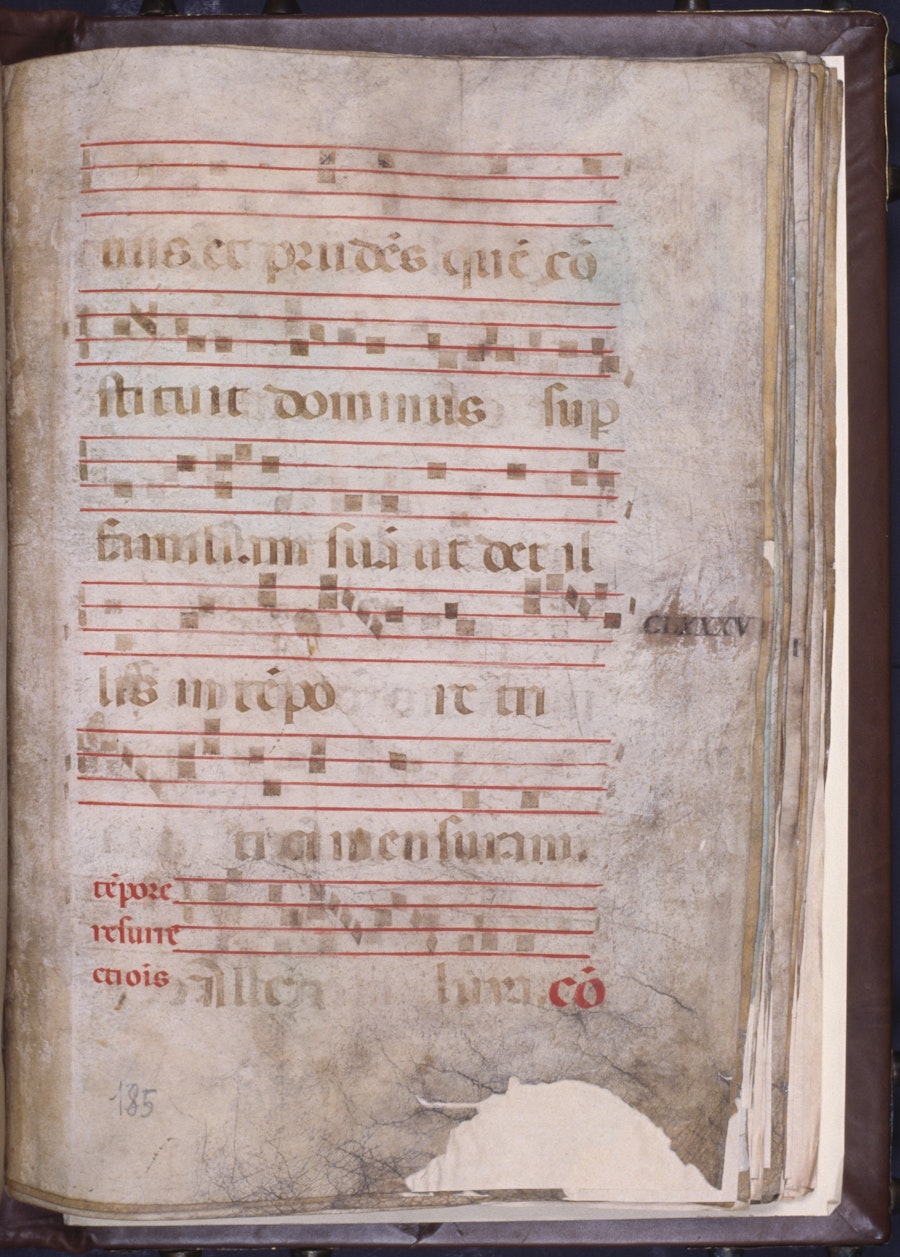 uus et prudēs quē cō
stituit dominus sup
familiam suā ut det il
lis in tēpo re tri
CLXXXV
tici mensuram.
tēpore
resurre
ctiōis Alle luya. cō
185